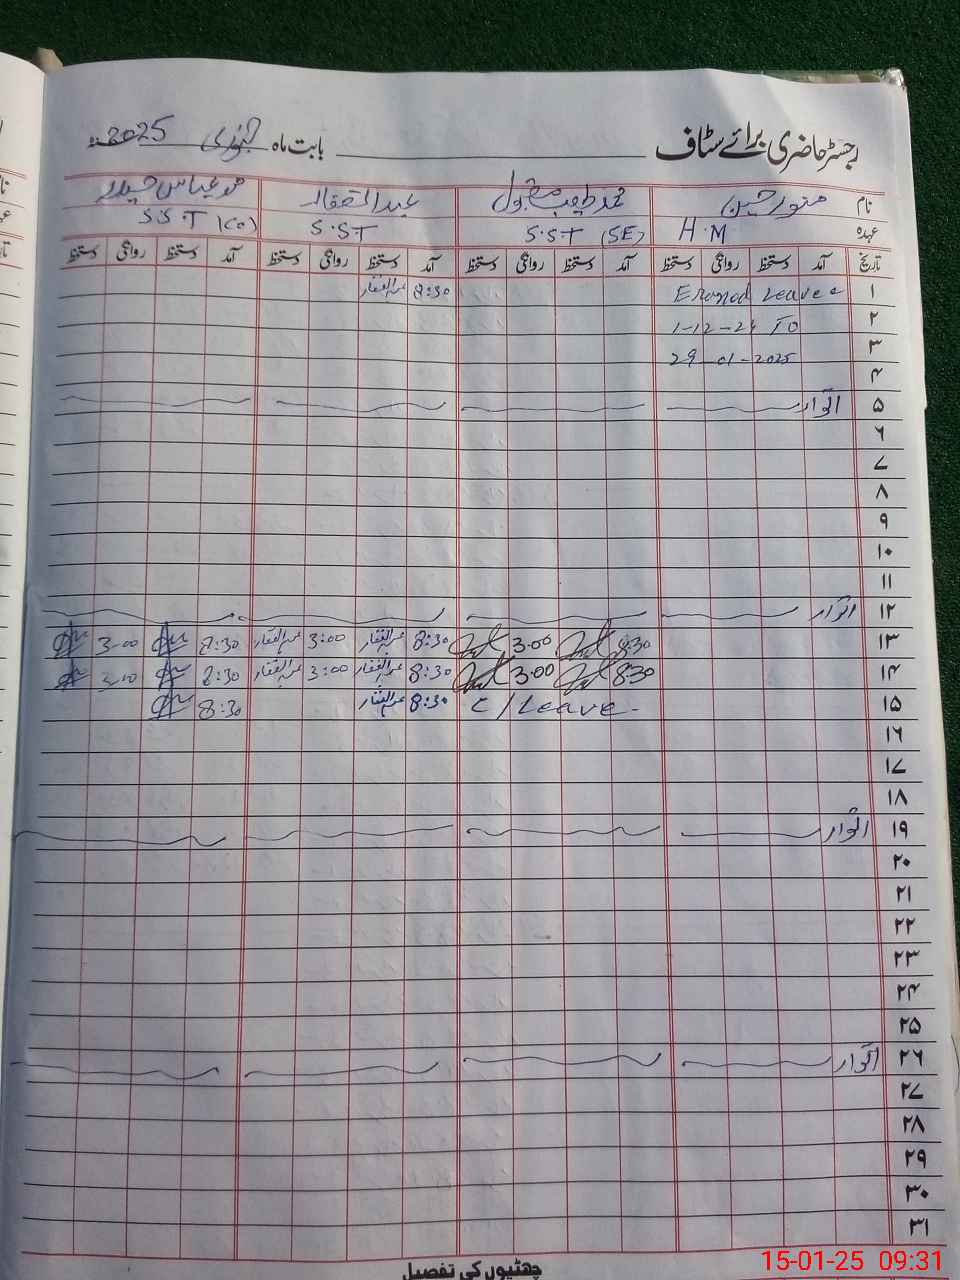 رجسٹر حاضری برائے سٹاف بابت ماہ جنوری 2025ء
نام منور حسین محمد طیب مقبول عبدالغفار محمد عباس حیدر
عہدہ H.M S.ST (SE) S.ST S.ST (CO)
تاریخ آمد دستخط روانگی دستخط آمد دستخط روانگی دستخط آمد دستخط روانگی دستخط آمد دستخط روانگی دستخط
۱ Leave 8:30 عبدالغفار
۲ 1-12-24 TO
۳ 29-01-2025
۴
۵ اتوار
۶
۷
۸
۹
۱۰
۱۱
۱۲ اتوار
۱۳ 8:30 3:00 8:30 عبدالغفار 3:00 عبدالغفار 8:30 3:00
۱۴ 8:30 3:00 8:30 عبدالغفار 3:00 عبدالغفار 8:30 3:00
۱۵ C/Leave 8:30 عبدالغفار 8:30
۱۶
۱۷
۱۸
۱۹ اتوار
۲۰
۲۱
۲۲
۲۳
۲۴
۲۵
۲۶ اتوار
۲۷
۲۸
۲۹
۳۰
۳۱
چھٹیوں کی تفصیل
15-01-25 09:31